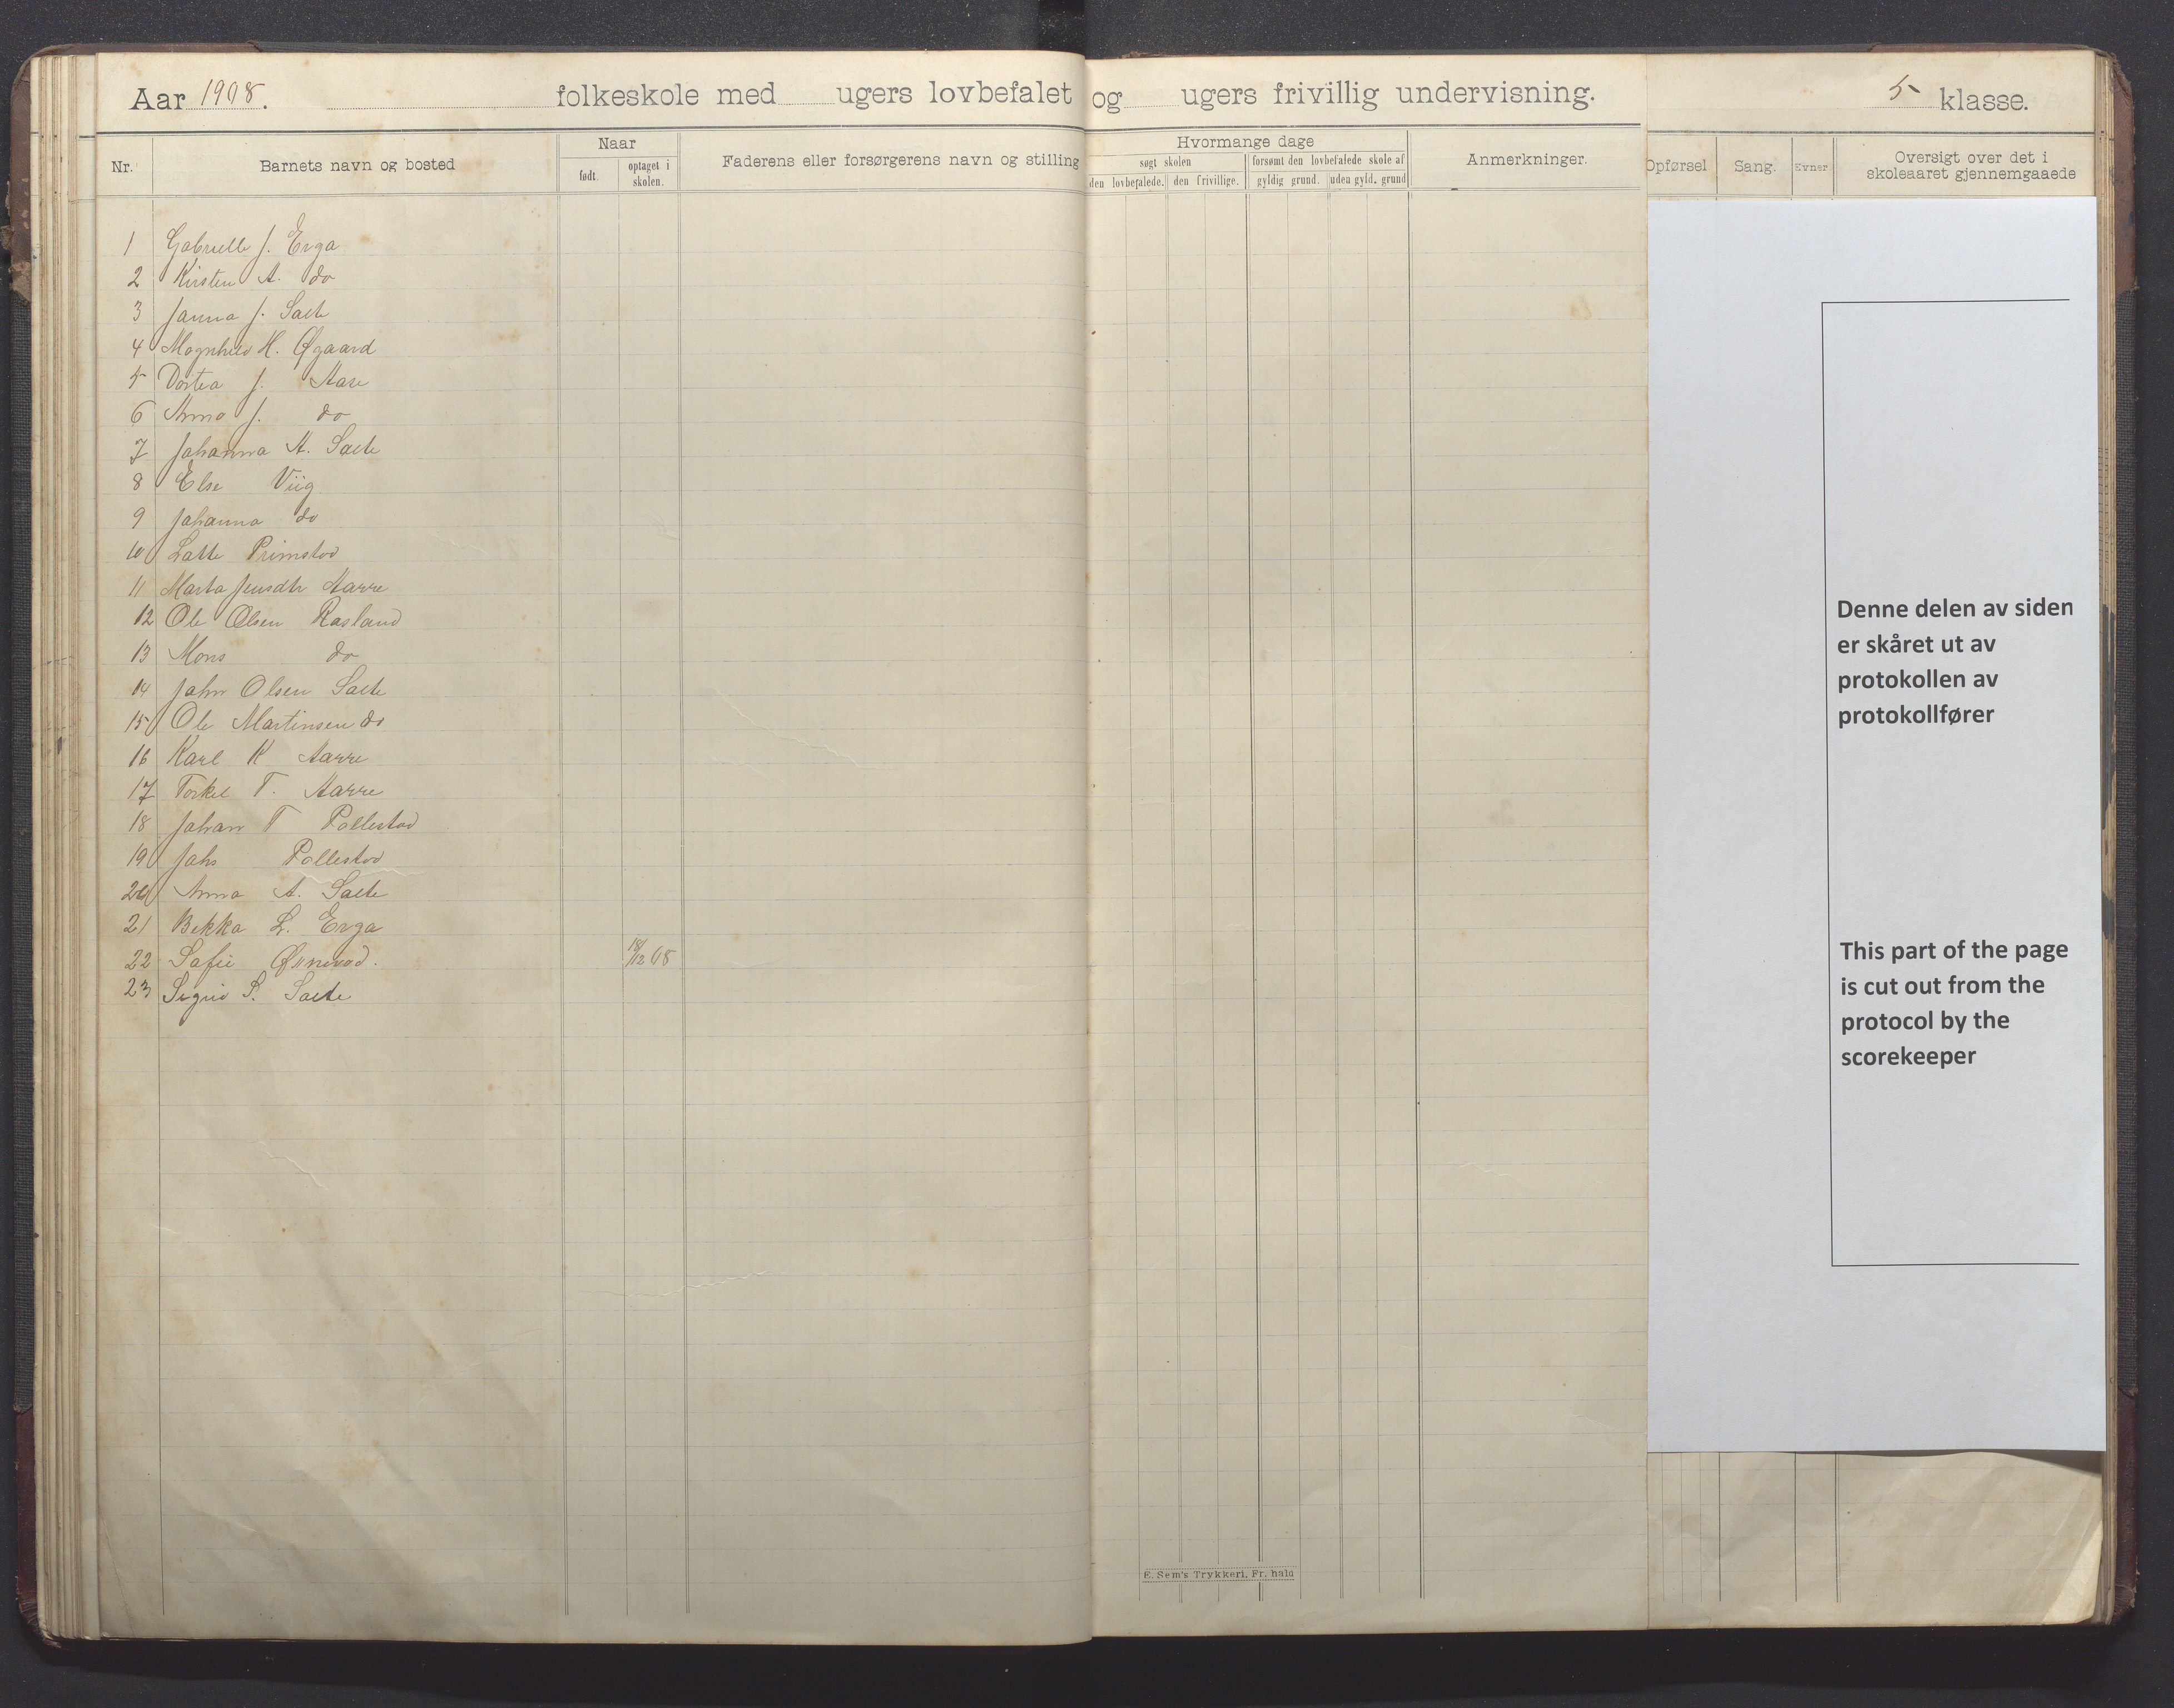 Aar 1908. folkeskole med ugers lovbefalet og ugers frivillig undervisning. 5 klasse.
Nr. Barnets navn og bosted Naar født. optaget i skolen. Faderens eller forsørgerens navn og stilling
Hvormange dage
søgt skolen forsømt den lovbefalede skole af
den lovbefalede. den frivillige. gyldig grund. uden gyld. grund
Anmerkninger.
Opførsel Sang. Evner Oversigt over det i skoleaaret gjennemgaaede
1 Gabrielle J. Erga
2 Kirsten A. do
3 Janna J. Salte
4 Magnhild H. Øgaard
5 Dortea J. Aase
6 Anna J. do
7 Johanna A. Salte
8 Else Viig
9 Johanna do
10 Latte Primstad
11 Marta Jensdtr Aarre
12 Ole Olsen Rosland
13 Mons do
14 John Olsen Salte
15 Ole Martinsen do
16 Karl K Aarre
17 Torkel T. Aarre
18 Johan T Pollestad
19 Johs Pollestad
20 Anna A. Salte
21 Bekka L. Erga
22 Sofie 18/12 08
23 Sigrid S. Salte
Denne delen av siden
er skåret ut av
protokollen av
protokollfører
This part of the page
is cut out from the
protocol by the
scorekeeper
E. Sem's Trykkeri, Fr. hald